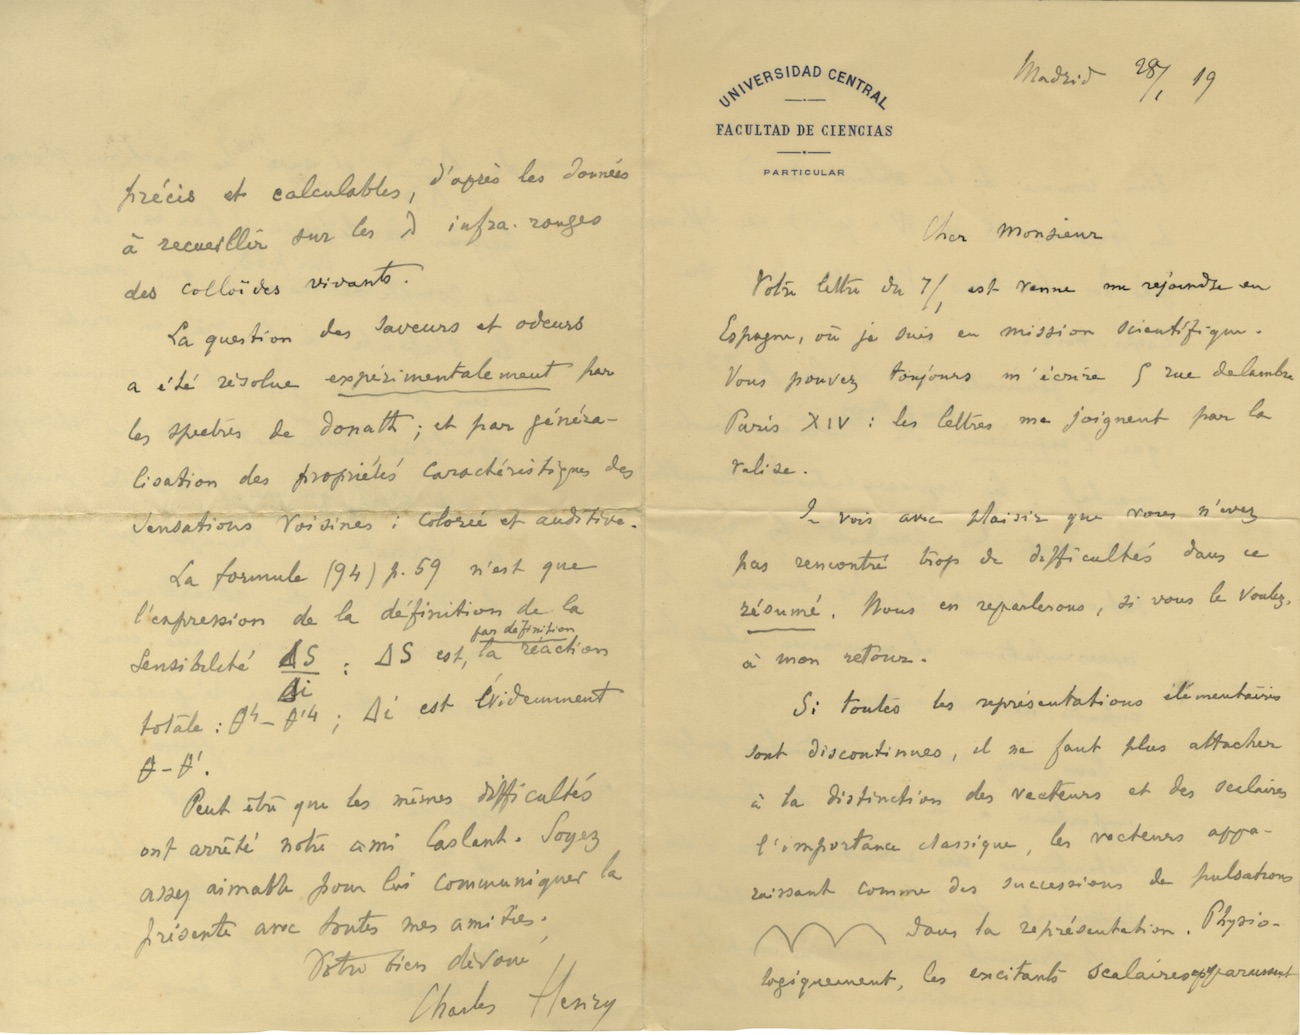 UNIVERSIDAD CENTRAL
FACULTAD DE CIENCIAS
PARTICULAR
Madrid 28/1 19
Cher Monsieur
Votre lettre du 7/1 est venue me rejoindre en
Espagne, où je suis en mission scientifique.
Vous pouvez toujours m'écrire 5 rue Delambre
Paris XIV : les lettres me joignent par la
valise.
Je vois avec plaisir que vous n'avez
pas rencontré trop de difficultés dans ce
résumé. Nous en reparlerons, si vous le voulez,
à mon retour.
Si toutes les représentations élémentaires
sont discontinues, il ne faut plus attacher
à la distinction des vecteurs et des scalaires
l'importance classique, les vecteurs appa-
raissant comme des successions de pulsations
dans la représentation. Physio-
logiquement, les excitants scalaires apparaissent
précis et calculables, d'après les données
à recueillir sur les λ infra-rouges
des colloïdes vivants.
La question des saveurs et odeurs
a été résolue expérimentalement par
les spectres de Donath ; et par généra-
lisation des propriétés caractéristiques des
sensations voisines : colorée et auditive.
La formule (94) p. 59 n'est que
l'expression de la définition de la
sensibilité ΔS/Δi : ΔS est, par définition, la réaction
totale : θ⁴ – θ'⁴ ; Δi est évidemment
θ – θ'.
Peut être que les mêmes difficultés
ont arrêté notre ami Caslant. Soyez
assez aimable pour lui communiquer la
présente avec toutes mes amitiés.
Votre bien dévoué
Charles Henry